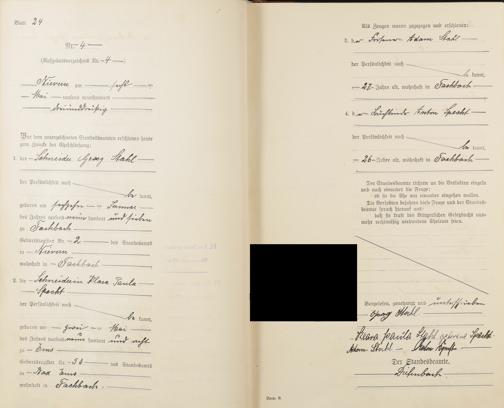 Blatt 24
Nr. 4
(Aufgebotsverzeichnis Nr. 4)
Nievern am sechs
Mai tausend neunhundert
dreiunddreißig
Vor dem unterzeichneten Standesbeamten erschienen heute
zum Zwecke der Eheschließung:
1. der Schneider Georg Stahl
der Persönlichkeit nach
be kannt,
geboren am sechzehn Januar
des Jahres tausend neun hundert und sieben
zu Fachbach
Geburtsregister Nr. 2 des Standesamts
in Nievern
wohnhaft in Fachbach
2. die Schneiderin Klara Paula
Specht
der Persönlichkeit nach
be kannt,
geboren am zwei Mai
des Jahres tausend neun hundert und acht
zu Ems
Geburtsregister Nr. 50 des Standesamts
in Bad Ems
wohnhaft in Fachbach
Als Zeugen waren zugezogen und erschienen:
3. der Adam Stahl
der Persönlichkeit nach
be kannt,
Jahre alt, wohnhaft in Fachbach
4. der Anton Specht
der Persönlichkeit nach
be kannt,
26 Jahre alt, wohnhaft in Fachbach
Der Standesbeamte richtete an die Verlobten einzeln
und nach einander die Frage:
ob sie die Ehe mit einander eingehen wollen.
Die Verlobten bejahten diese Frage und der Standes-
beamte sprach hierauf aus:
daß sie kraft des Bürgerlichen Gesetzbuchs nun-
mehr rechtmäßig verbundene Eheleute seien.
Vorgelesen, genehmigt und unterschrieben
Georg Stahl
Klara Paula Stahl geborene Specht
Adam Stahl Anton Specht
Der Standesbeamte.